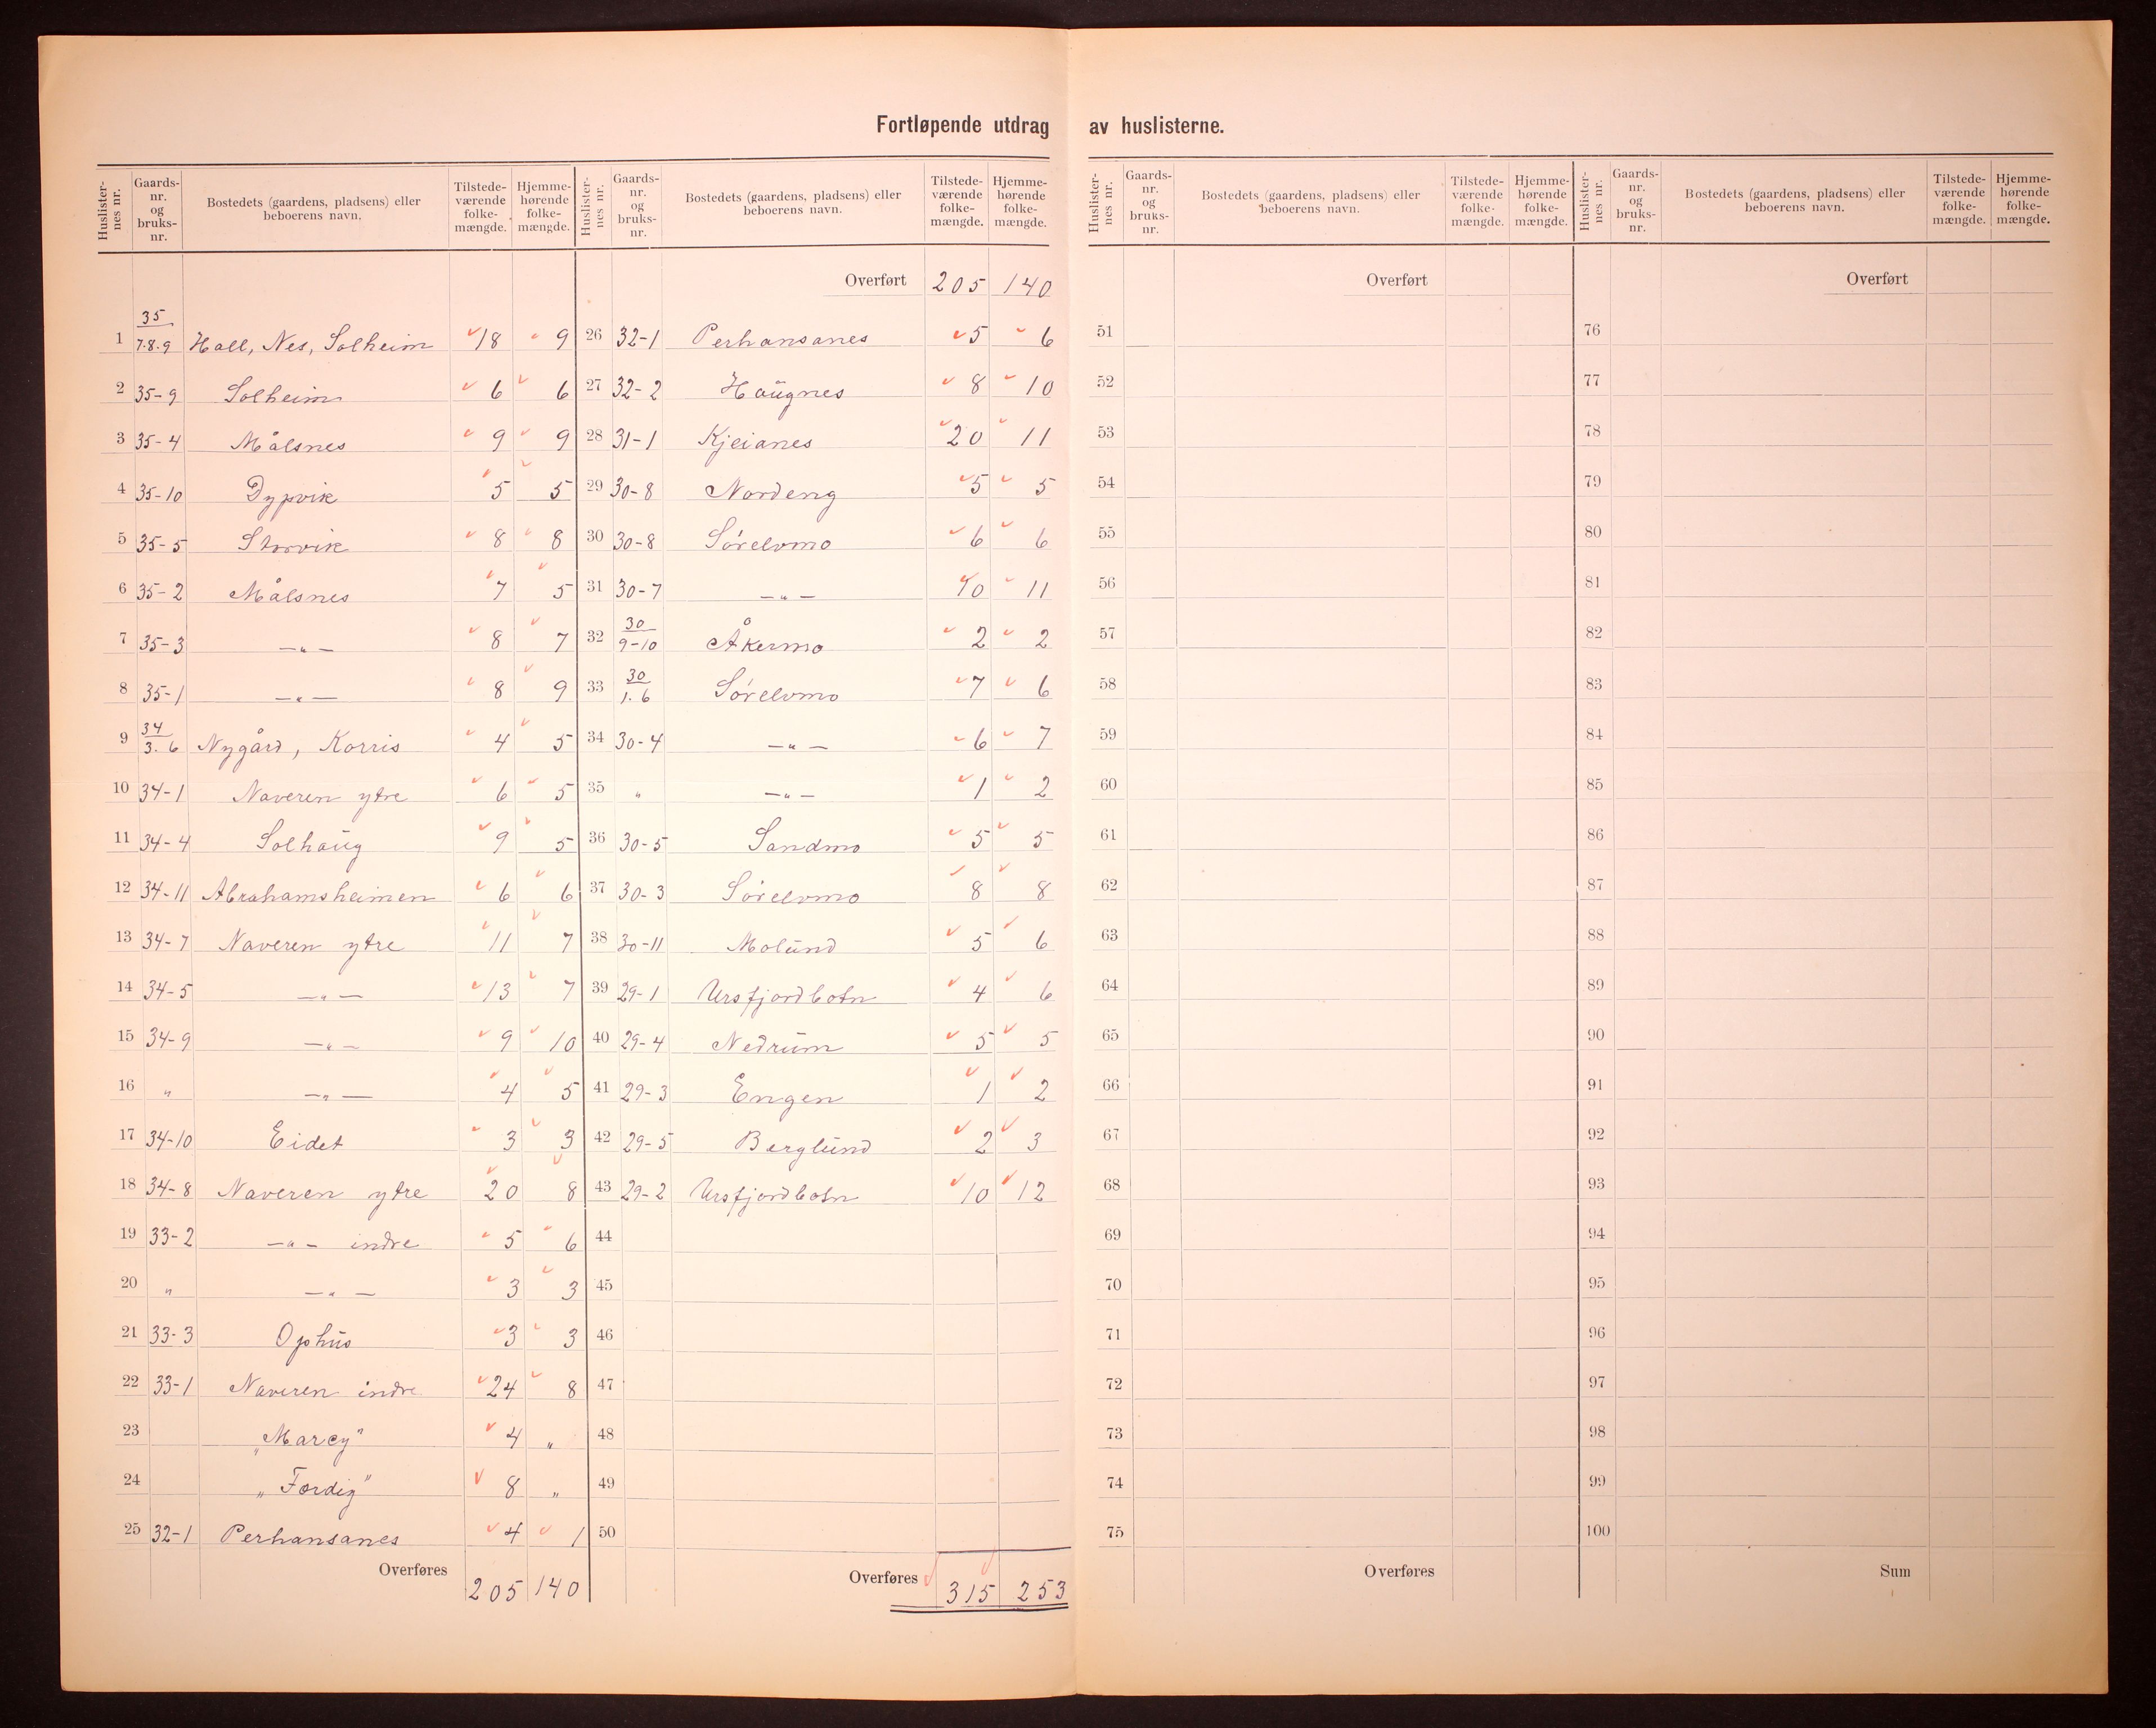 Fortløpende utdrag av huslisterne.
Huslister-nes nr. | Gaards-nr. og bruks-nr. | Bostedets (gaardens, pladsens) eller beboerens navn. | Tilstede-værende folke-mængde. | Hjemme-hørende folke-mængde.
1 35/7.8.9 Hall, Nes, Solheim 18 9
2 35-9 Solheim 6 6
3 35-4 Målsnes 9 9
4 35-10 Dypvik 5 5
5 35-5 Storvik 8 8
6 35-2 Målsnes 7 5
7 35-3 —„— 8 7
8 35-1 —„— 8 9
9 34/3.6 Nygård, Korris 4 5
10 34-1 Naveren ytre 6 5
11 34-4 Solhaüg 9 5
12 34-11 Abrahamsheimen 6 6
13 34-7 Naveren ytre 11 7
14 34-5 —„— 13 7
15 34-9 —„— 9 10
16 „ —„— 4 5
17 34-10 Eidet 3 3
18 34-8 Naveren ytre 20 8
19 33-2 —„— indre 5 6
20 „ —„— 3 3
21 33-3 Ophüs 3 3
22 33-1 Naveren indre 24 8
23 „Marcy" 4 „
24 „Færdig" 8 „
25 32-1 Perhansanes 4 1
Overføres 205 140
Huslister-nes nr. | Gaards-nr. og bruks-nr. | Bostedets (gaardens, pladsens) eller beboerens navn. | Tilstede-værende folke-mængde. | Hjemme-hørende folke-mængde.
Overført 205 140
26 32-1 Perhansanes 5 6
27 32-2 Haügnes 8 10
28 31-1 Kjeianes 20 11
29 30-8 Nordeng 5 5
30 30-8 Sørelvmo 6 6
31 30-7 —„— 10 11
32 30/9-10 Åkermo 2 2
33 30/1.6 Sørelvmo 7 6
34 30-4 —„— 6 7
35 „ —„— 1 2
36 30-5 Sandmo 5 5
37 30-3 Sørelvmo 8 8
38 30-11 Molünd 5 6
39 29-1 Ursfjordbotn 4 6
40 29-4 Nedrüm 5 5
41 29-3 Engen 1 2
42 29-5 Berglünd 2 3
43 29-2 Ursfjordbotn 10 12
44
45
46
47
48
49
50
Overføres 315 253
Huslister-nes nr. | Gaards-nr. og bruks-nr. | Bostedets (gaardens, pladsens) eller beboerens navn. | Tilstede-værende folke-mængde. | Hjemme-hørende folke-mængde.
Overført
51
52
53
54
55
56
57
58
59
60
61
62
63
64
65
66
67
68
69
70
71
72
73
74
75
Overføres
Huslister-nes nr. | Gaards-nr. og bruks-nr. | Bostedets (gaardens, pladsens) eller beboerens navn. | Tilstede-værende folke-mængde. | Hjemme-hørende folke-mængde.
Overført
76
77
78
79
80
81
82
83
84
85
86
87
88
89
90
91
92
93
94
95
96
97
98
99
100
Sum